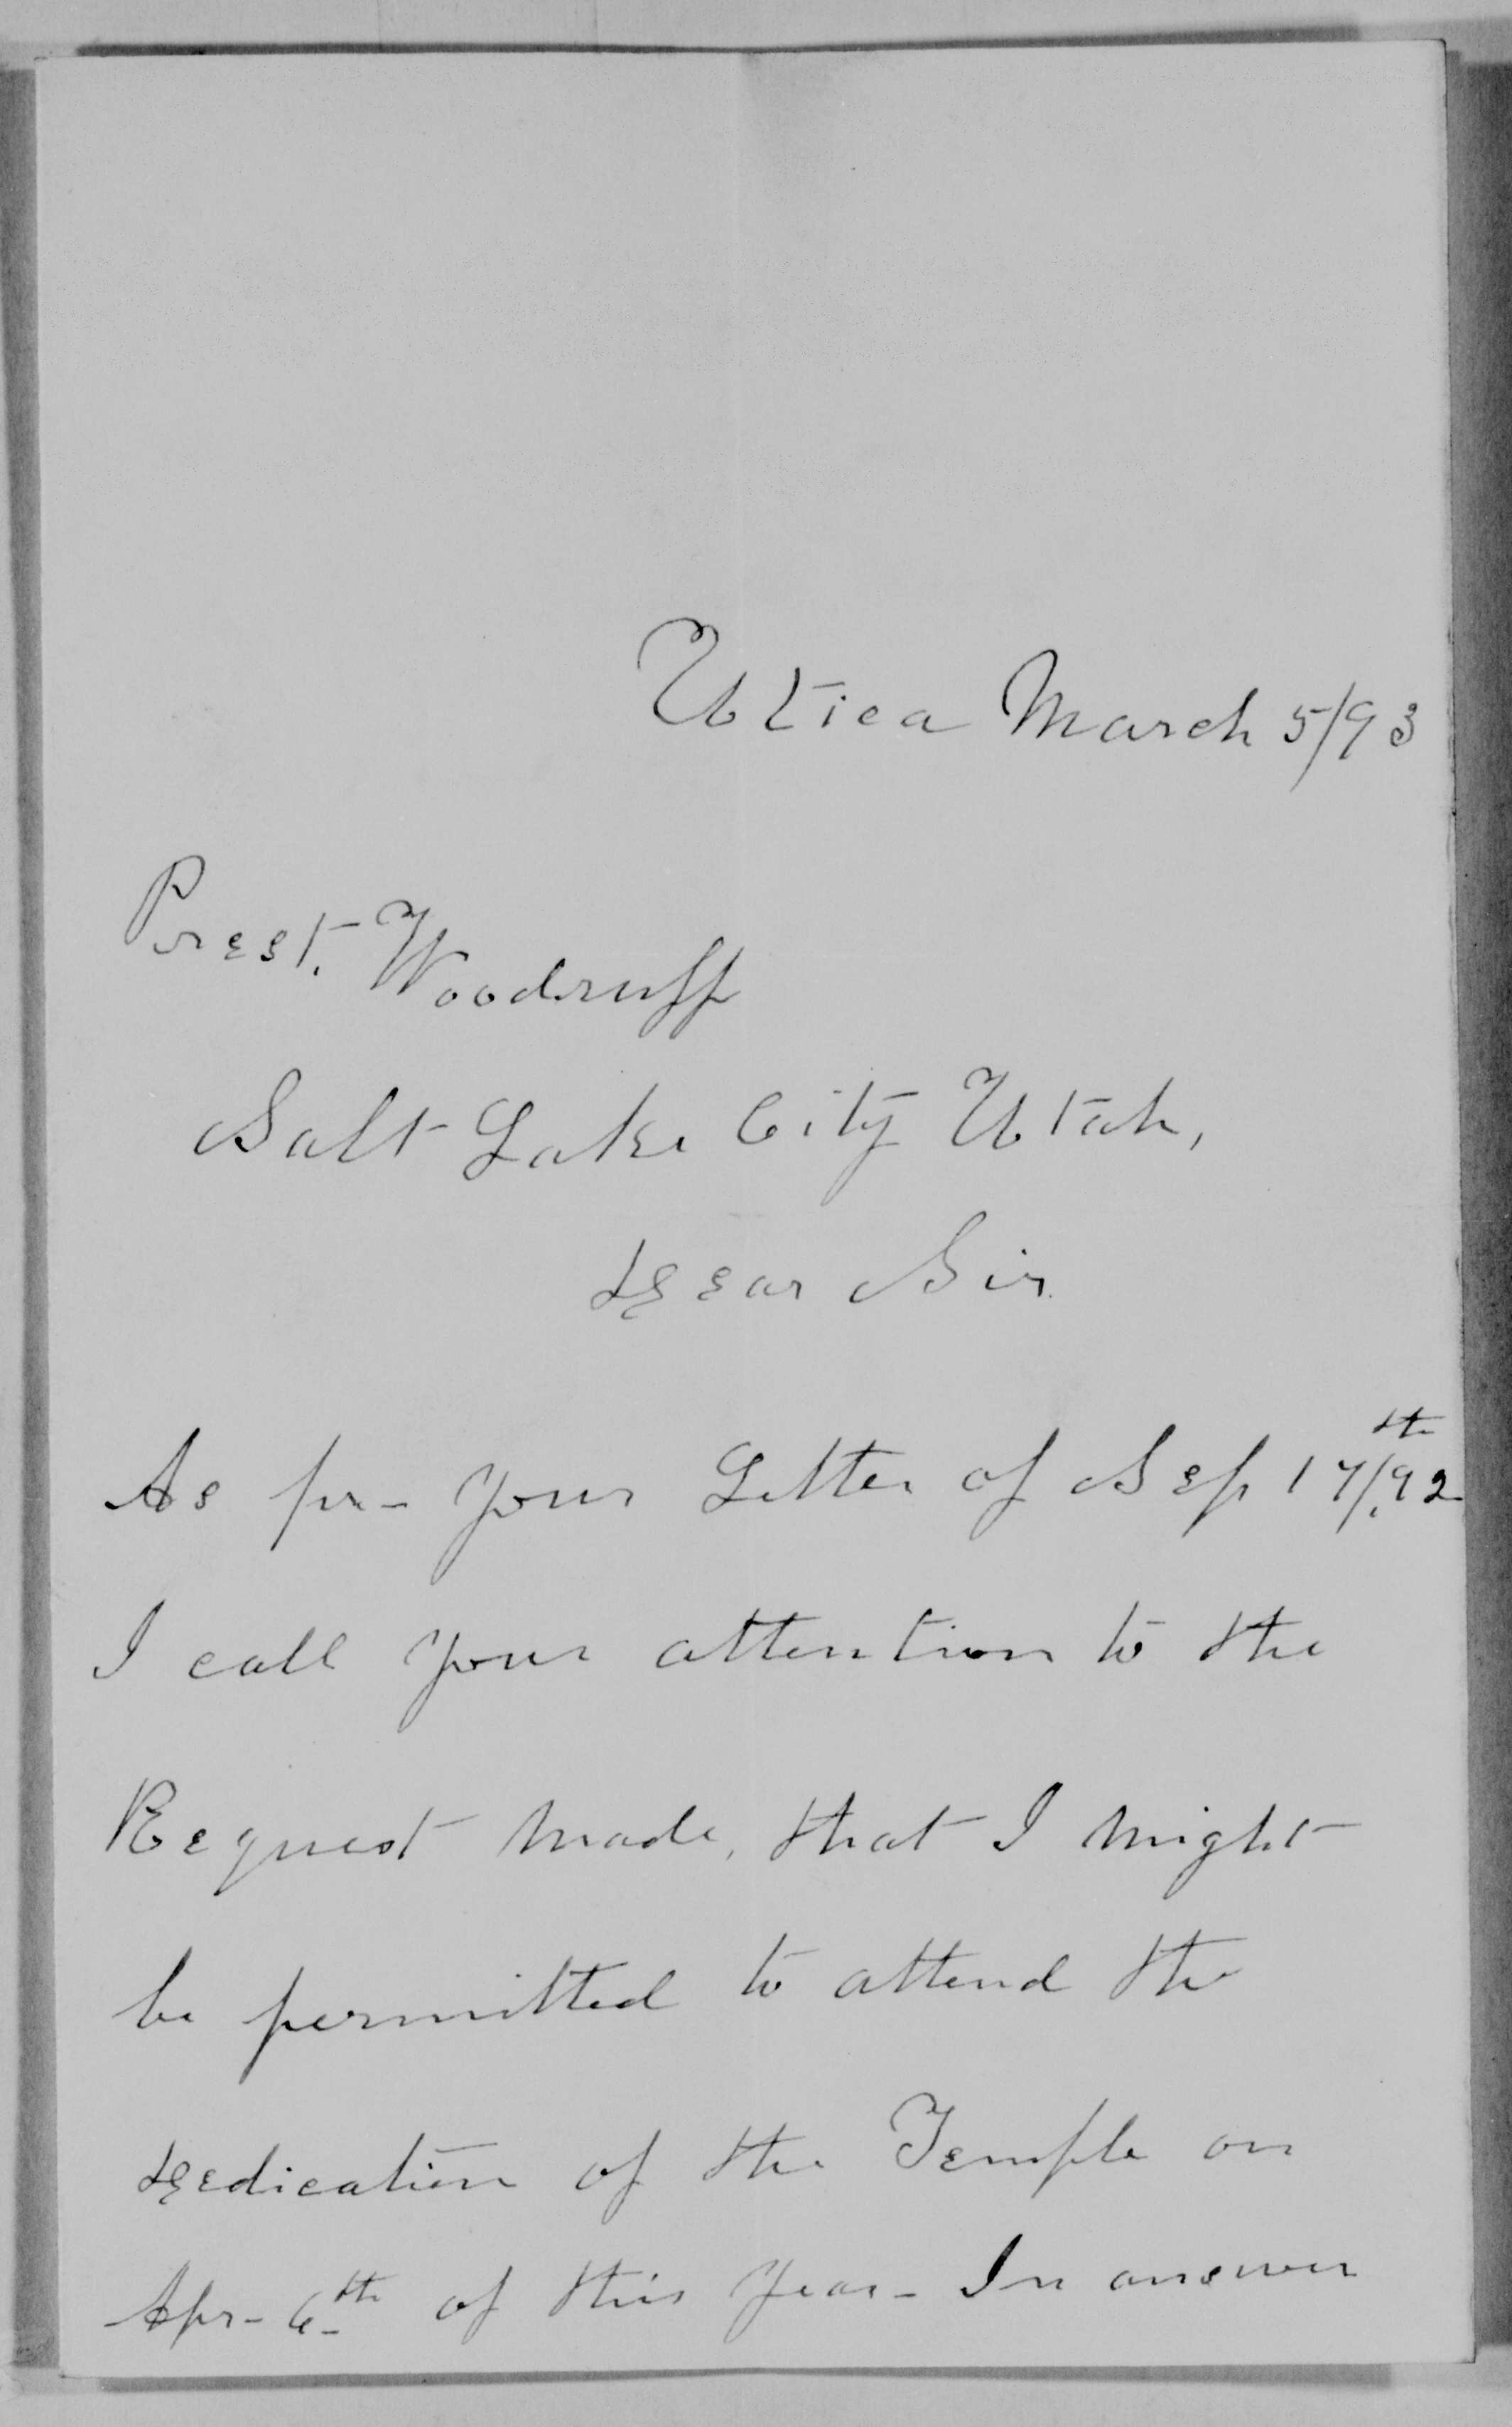 Utica March 5/93
Prest. Woodruff
Salt Lake City Utah,
Dear Sir
As pr- your Letter of Sep 17th/92
I call your attention to the
Request made, that I might
be permitted to attend the
Dedication of the Temple on
Apr- 6th of this year- In answer